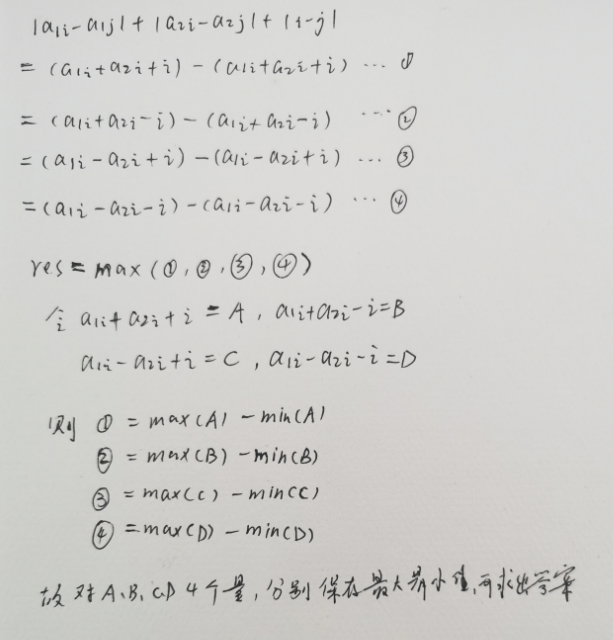 |a₁i-a₁j|+|a₂i-a₂j|+|i-j|
=(a₁i+a₂i+i)-(a₁i+a₂i+i) … ①
=(a₁i+a₂i-i)-(a₁i+a₂i-i) … ②
=(a₁i-a₂i+i)-(a₁i-a₂i+i) … ③
=(a₁i-a₂i-i)-(a₁i-a₂i-i) … ④
res=max(①,②,③,④)
令 a₁i+a₂i+i=A, a₁i+a₂i-i=B
a₁i-a₂i+i=C, a₁i-a₂i-i=D
则 ①=max(A)-min(A)
②=max(B)-min(B)
③=max(C)-min(C)
④=max(D)-min(D)
故对A、B、C、D 4个量,分别保存最大最小值,可求出答案